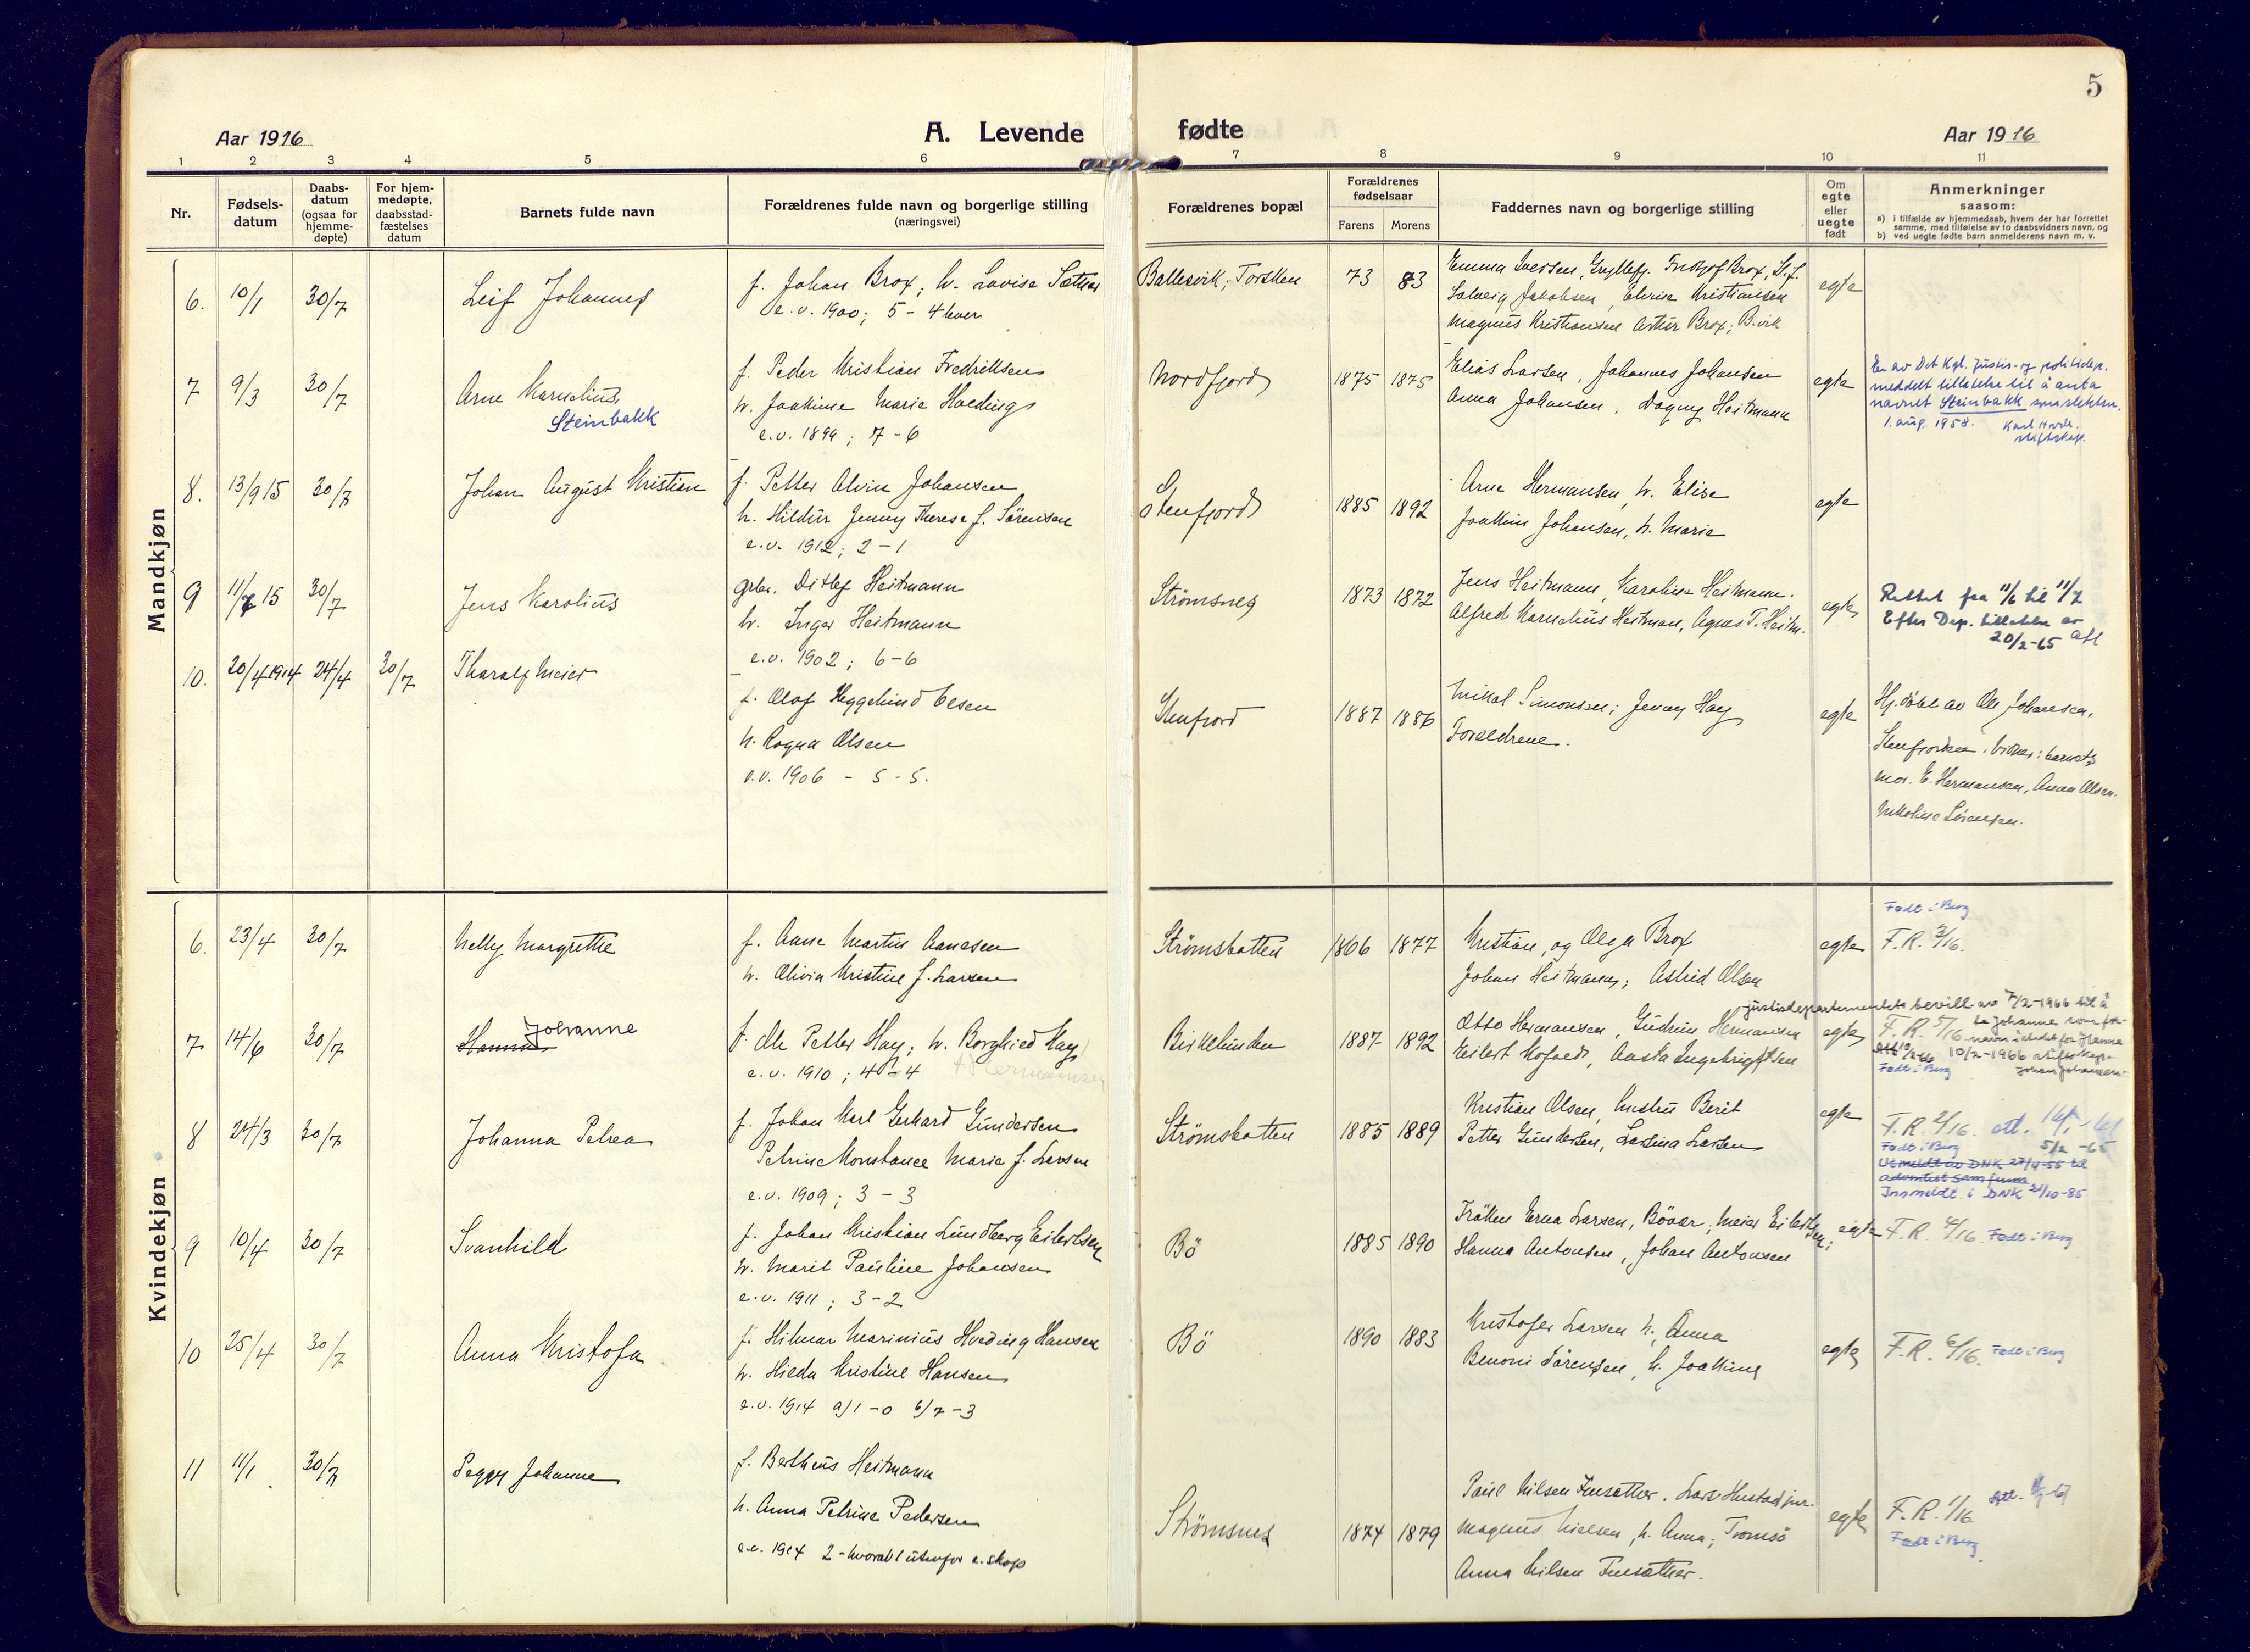 5
Aar 1916
A. Levende fødte
Aar 1916
1 2 3 4 5 6 7 8 9 10 11
Nr.
Fødsels-
datum
Daabs-
datum
(ogsaa for
hjemme-
døpte)
For hjem-
medøpte,
daabsstad-
fæstelses
datum
Barnets fulde navn
Forældrenes fulde navn og borgerlige stilling
(næringsvei)
Forældrenes bopæl
Forældrenes
fødselsaar
Farens Morens
Faddernes navn og borgerlige stilling
Om
egte
eller
uegte
født
Anmerkninger
saasom:
a) i tilfælde av hjemmedaab, hvem der har forrettet
samme, med tilføielse av to daabsvidners navn, og
b) ved uegte fødte barn anmelderens navn m. v.
Mandkjøn
6. 10/1 30/7 Leif Johannes
f. Johan Brox; h. Lovise Sæther
e.v. 1900; 5 - 4 lever
Ballesvik, Torsken 73 83
Emma Iversen, Gryllefj. Fridtjof Brox,
Solveig Jakobsen, Kristiansen
Magnus Kristiansen Artur Brox; B.vik
egte
7 9/3 30/7 Arne Karnelius
Steinbakk
f. Peder Kristian Fredriksen
h. Joakime Marie Hveding
e.v. 1899; 7 - 6
Nordfjord 1875 1875
Elias Larsen, Johannes Johansen
Anna Johansen, Dagny Heitmann
egte
Er av Det Kgl. Justis- og politidep.
meddelt tillatelse til å anta
navnet Steinbakk som slektsn.
1. aug. 1958.
8. 13/9 15 30/7 Johan August Kristian
f. Petter Alvin Johansen
h. Hildur Jenny Therese f. Sörensen
e.v. 1912; 2 - 1
Stenfjord 1885 1892
Arne Hermansen, h. Elise
Joakim Johansen, h. Marie
egte
9 11/7 15 30/7 Jens Karolius
grbr. Ditlef Heitmann
h. Inger Heitmann
e.v. 1902; 6-6
Strömsnes 1873 1872
Jens Heitmann, Karoline Heitmann.
Alfred Karnelius Heitman, Agnes T. Heitm.
egte
Rettet fra 11/6 til 11/7
Efter Dep. tillatelse av
20/2-65
10. 20/4 1914 24/4 30/7 Tharalf Meier
f. Olaf Heggelund Olsen
h. Ragna Olsen
e.v. 1906 - 5 - 5.
Stenfjord 1887 1886
Mikal Simonsen; Jenny Hay
Foreldrene.
egte
Hj.döbt av Ole Johansen,
Stenfjorden. Vidner: barnets
mor. E. Hermansen, Anna Olsen.
Nikoline Sörensen.
Kvindekjøn
6. 23/4 30/7 Nelly Margrethe
f. Aane Martin Aanesen
h. Olivia Kristine f. Larsen
Strömsbotten 1866 1877
Kristian, og Olga Brox
Johan Heitmann; Astrid Olsen
egte
Født i Berg
F.R. 3/16.
7 14/6 30/7 Hanna Johanne
f. Ole Petter Hay; h. Borghild Hay
e.v. 1910; 4 - 4
f. Hermansen
Birkelunden 1887 1892
Otto Hermansen, Gudrun Hermansen
Eilert Hofsedt, Aasta Ingebrigtsen
egte
Justisdepartementets bevill. av 7/2-1966 til å
F.R. 5/16 ta Johanne som for-
navn istedet for Hanna
10/2-1966 stiftskap.
Født i Berg
8 24/3 30/7 Johanna Petrea
f. Johan Karl Gerhard Gundersen
Petrine Konstance Marie f. Larsen
e.v. 1909; 3 - 3
Strömsbotten 1885 1889
Kristian Olsen, hustru Berit
Petter Gundersen, Larsina Larsen
egte
F.R. 2/16. att.
Født i Berg 5/2 -65
Utmeldt av DNK 27/4-55 til
adventist samfunn
Innmeldt i DNK 21/10-85
9 10/4 30/7 Svanhild
f. Johan Kristian Lundberg Eilertsen
h. Marit Pauline Johansen
e.v. 1911; 3 - 2
Bö 1885 1890
Fröken Erna Larsen, Bövær, Meier Eilertsen;
Hanna Antonsen, Johan Antonsen
egte
F.R. 4/16. Født i Berg
10 25/4 30/7 Anna Kristofa
f. Hilmar Marinius Hveding Hansen
h. Hilda Kristine Hansen
e.v. 1914 a/1 - 0 b/7 - 3
Bö 1890 1883
Kristofer Larsen h. Anna
Benoni Sörensen, h. Joakime
egte
F.R. 6/16. Født i Berg
11 11/1 30/7 Peggy Johanne
f. Bertheus Heitmann
h. Anna Petrine Pedersen
e.v. 1914 2 - hvorav 1 utenfor e.skap
Strömsnes 1874 1879
Paul Nilsen Finsæther. Lars Hustad jur.
Magnus Nielsen, h. Anna; Tromsö
Anna Nilsen Finsæther.
egte
F.R. 1/16
Født i Berg